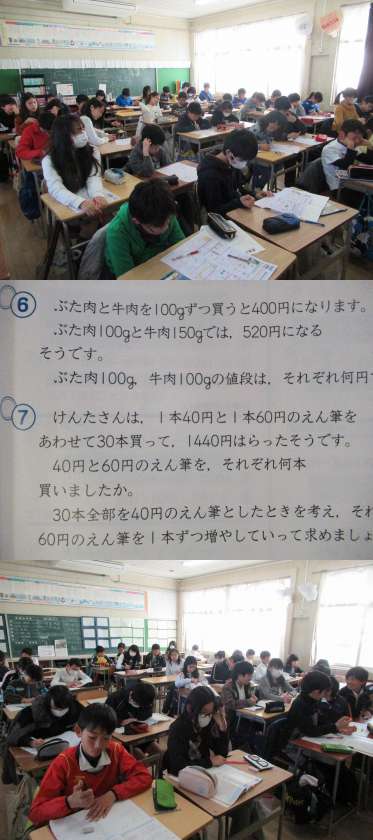 6 ぶた肉と牛肉を100gずつ買うと400円になります。
ぶた肉100gと牛肉150gでは，520円になる
そうです。
ぶた肉100g，牛肉100gの値段は，それぞれ何円
7 けんたさんは，1本40円と1本60円のえん筆を
あわせて30本買って，1440円はらったそうです。
40円と60円のえん筆を，それぞれ何本
買いましたか。
30本全部を40円のえん筆としたときを考え，それ
60円のえん筆を1本ずつ増やしていって求めましょ